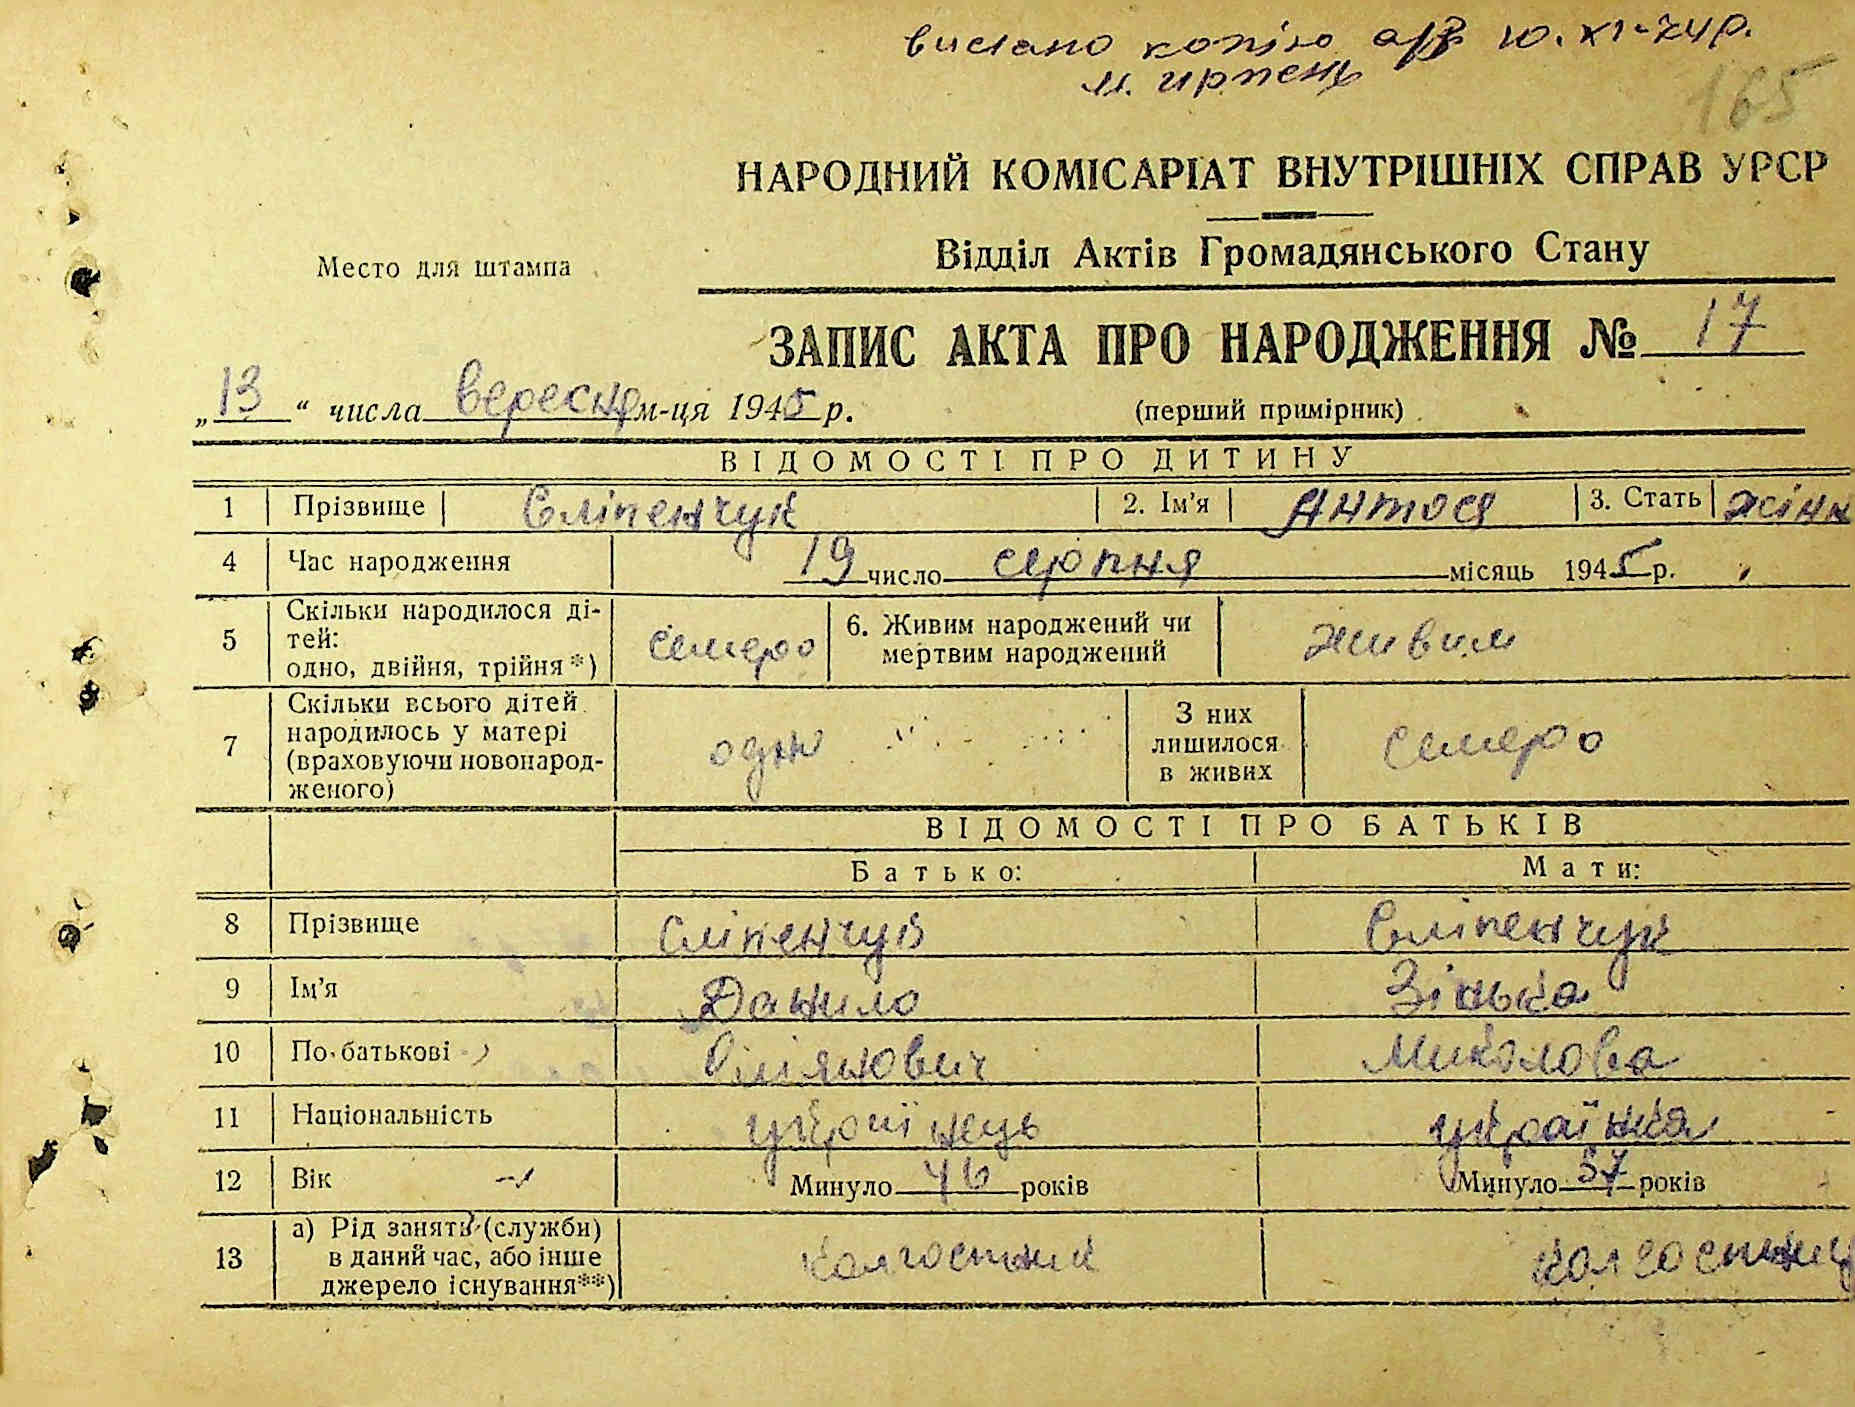 вислано копію а/з 10.XI-74р.
м. Ирпень
165
НАРОДНИЙ КОМІСАРІАТ ВНУТРІШНІХ СПРАВ УРСР
Место для штампа
Відділ Актів Громадянського Стану
ЗАПИС АКТА ПРО НАРОДЖЕННЯ № 17
„13“ числа вересня м-ця 1945 р.
(перший примірник)
ВІДОМОСТІ ПРО ДИТИНУ
1 Прізвище Сліпенчук 2. Ім'я Антося 3. Стать жінк
4 Час народження 19 число серпня місяць 1945 р.
5 Скільки народилося ді-
тей:
одно, двійня, трійня*) семеро 6. Живим народжений чи
мертвим народжений живим
7 Скільки всього дітей
народилось у матері
(враховуючи новонарод-
женого) одне З них
лишилося
в живих семеро
ВІДОМОСТІ ПРО БАТЬКІВ
Батько: Мати:
8 Прізвище Сліпенчук Сліпенчук
9 Ім'я Данило Зінька
10 По-батькові Омілянович Миколова
11 Національність українець українка
12 Вік Минуло 46 років Минуло 37 років
13 а) Рід занять (служби)
в даний час, або інше
джерело існування**) колгоспник колгоспниц